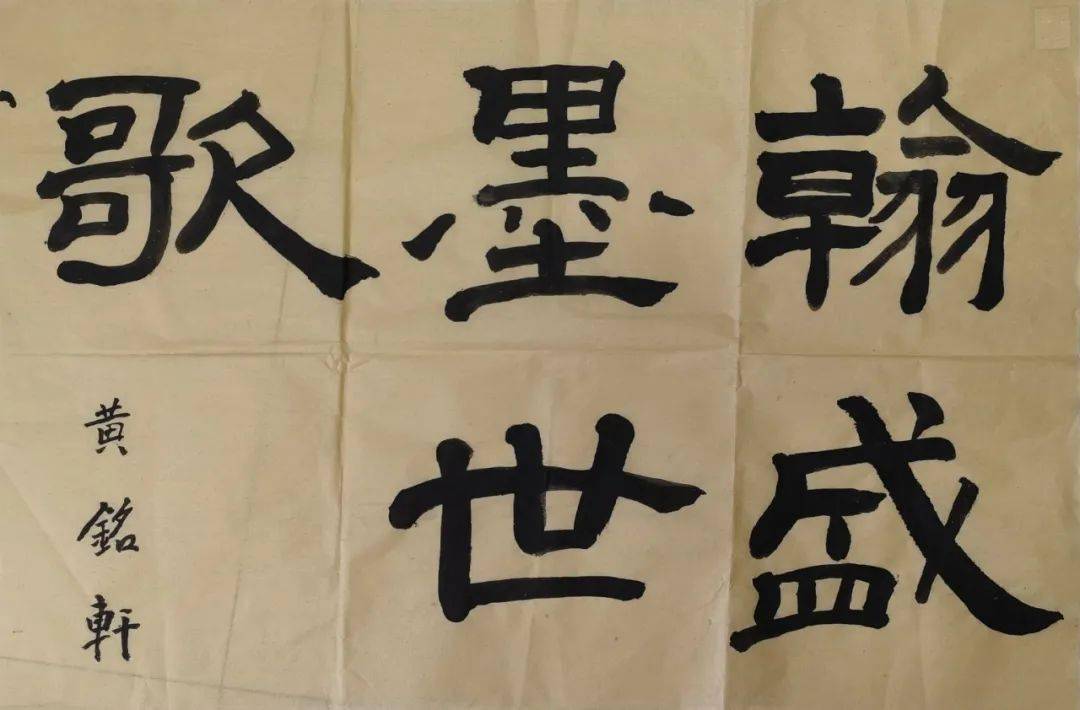 翰墨歌
盛世
黄銘軒